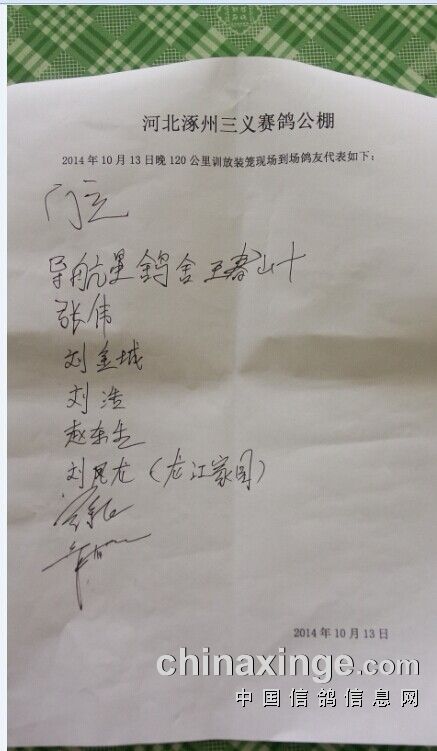 河北涿州三义赛鸽公棚
2014年10月13日晚120公里训放装笼现场到场鸽友代表如下：
导航星鸽舍 王春山
张伟
刘金城
刘浩
赵东生
刘凤龙（龙江家园）
2014年10月13日
chinaxinge.com
中国信鸽信息网